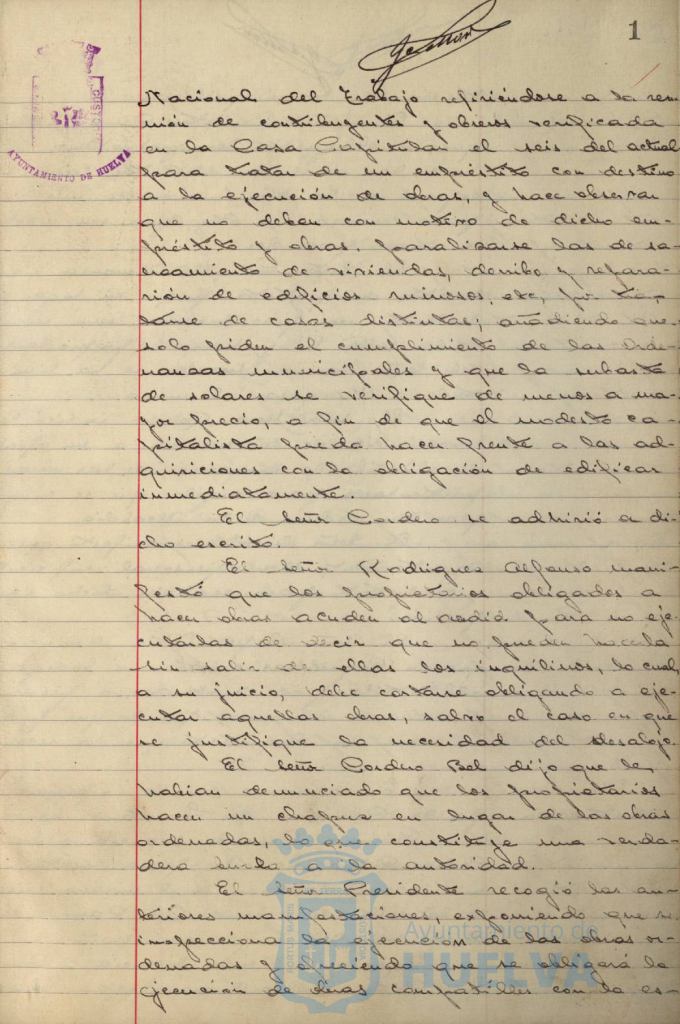 1
AYUNTAMIENTO DE HUELVA
Nacional del Trabajo refiriéndose a la reu-
nión de contribuyentes y obreros verificada
en la Casa Capitular el seis del actual
para tratar de un empréstito con destino
a la ejecución de obras, y hace observar
que no deben con motivo de dicho em-
préstito y obras, paralizarse las de sa-
neamiento de viviendas, derribo y repara-
ción de edificios ruinosos, etc, por tra-
tarse de cosas distintas; añadiendo que
solo piden el cumplimiento de las Orde-
nanzas municipales y que la subasta
de solares se verifique de menos a ma-
yor precio, a fin de que el modesto ca-
pitalista pueda hacer frente a las ad-
quisiciones con la obligación de edificar
inmediatamente.
El Señor Cordero se adhirió a di-
cho escrito.
El Señor Rodriguez Alfonso mani-
festó que los propietarios obligados a
hacer obras acuden al para no eje-
cutarlas de decir que no pueden hacerla
sin salir de ellas los inquilinos, lo cual,
a su juicio, debe cortarse obligando a eje-
cutar aquellas obras, salvo el caso en que
se justifique la necesidad del desalojo.
El Señor Cordero Bel dijo que le
habian denunciado que los propietarios
hacen un chapuz en lugar de las obras
ordenadas, lo que constituye una verda-
dera burla a la autoridad.
El Señor Presidente recogió las an-
teriores manifestaciones, exponiendo que se
inspecciona la ejecución de las obras or-
denadas y ofreciendo que se obligará la
ejecución de obras compatibles con la es-
Ayuntamiento de
HUELVA